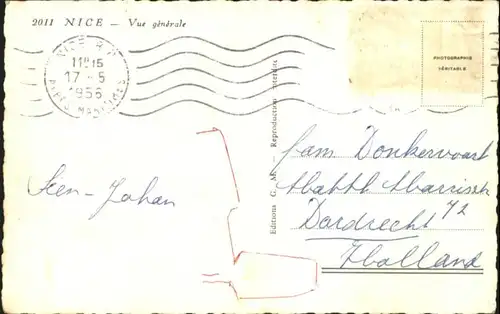 2011 NICE — Vue générale
NICE R.P.
11H15
17-5
1956
ALPES MARITIMES
PHOTOGRAPHIE
VÉRITABLE
Editions G. M. — Reproduction interdite
Sien - Johan
fam Donkervoort
Matth
72
Dordrecht
Holland